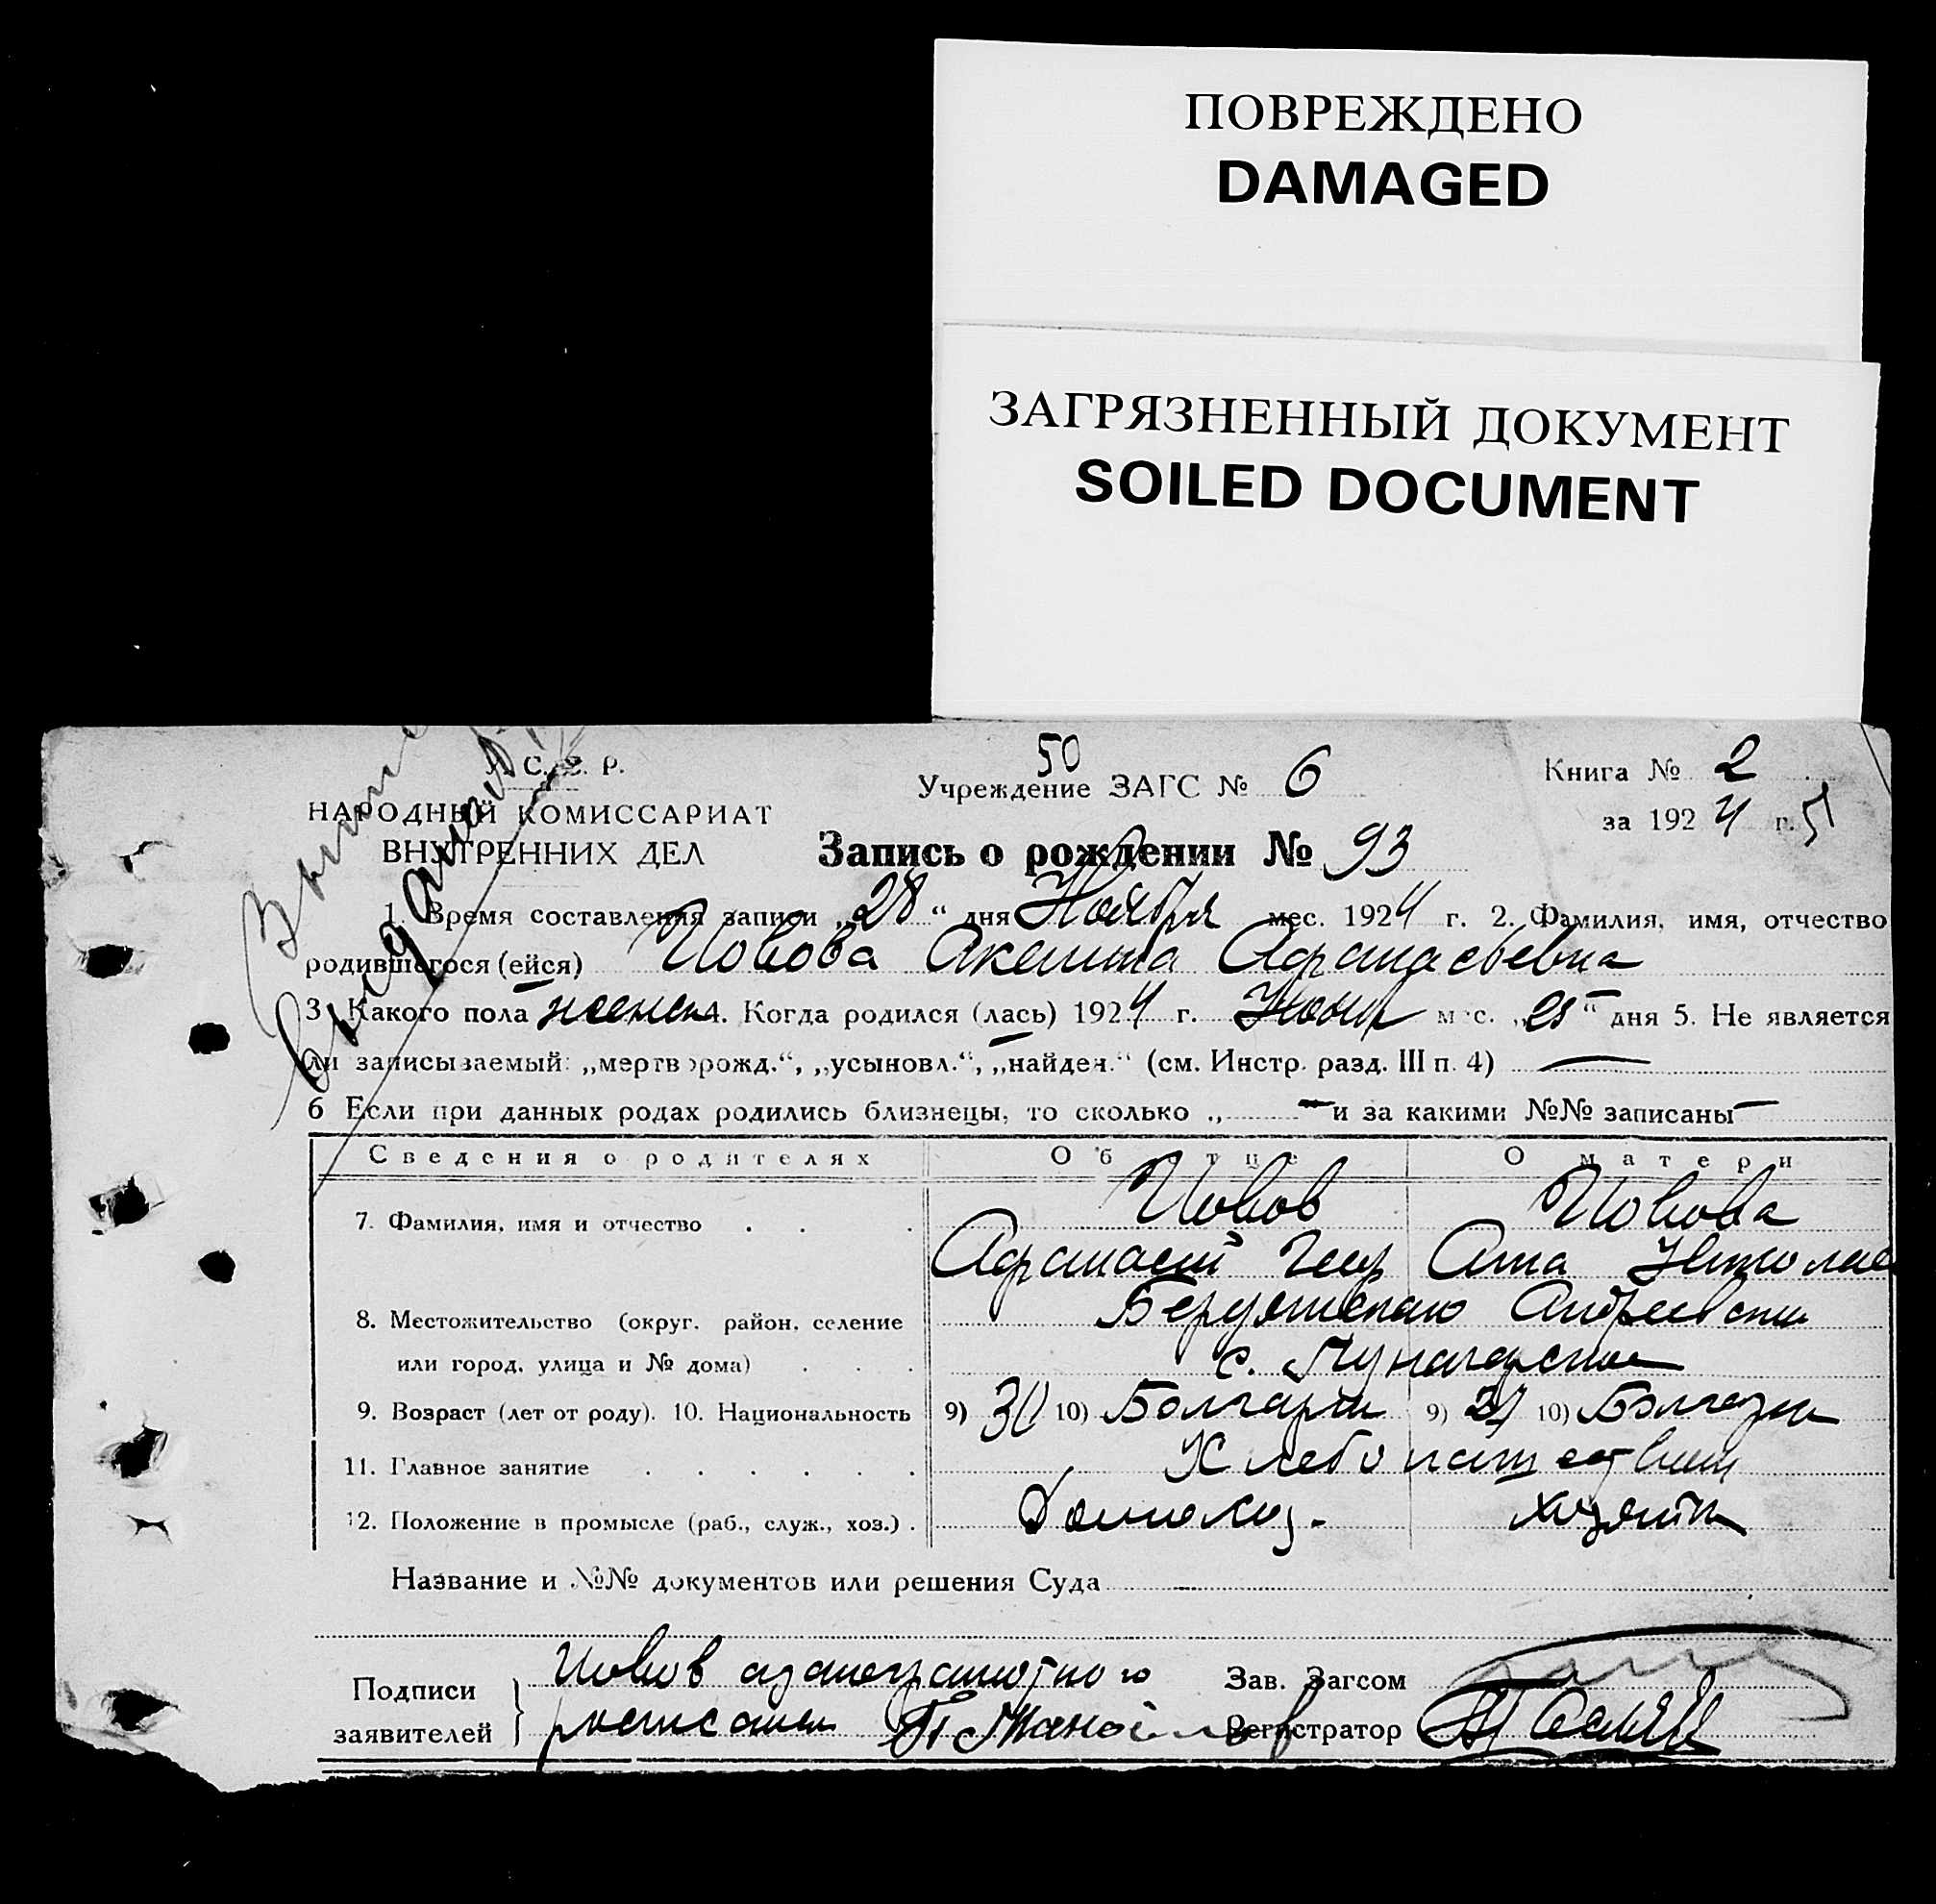 ПОВРЕЖДЕНО
DAMAGED
ЗАГРЯЗНЕННЫЙ ДОКУМЕНТ
SOILED DOCUMENT
С. Р.
НАРОДНЫЙ КОМИССАРИАТ
ВНУТРЕННИХ ДЕЛ
50
Учреждение ЗАГС № 6
Книга № 2
за 1924 г.
Запись о рождении № 93
1. Время составления записи „28“ дня Ноября мес. 1924 г. 2. Фамилия, имя, отчество
родившегося (ейся) Иовова Афанасьевна
3. Какого пола женск 4. Когда родился (лась) 1924 г. мес. „25“ дня 5. Не является
ли записываемый: „мертворожд.“, „усыновл.“, „найден.“ (см. Инстр. разд. III п. 4) —
6 Если при данных родах родились близнецы, то сколько „ — и за какими №№ записаны —
Сведения о родителях Об отце О матери
7. Фамилия, имя и отчество . . . Иовов Иовова
Афанасий Геор Анна Николае
8. Местожительство (округ, район, селение Андреевски
или город, улица и № дома) . . . с.
9. Возраст (лет от роду). 10. Национальность 9) 30 10) Болгарин 9) 27 10) Болгарк
11. Главное занятие . . . . . . Хлебопашество
12. Положение в промысле (раб., служ., хоз.) . Домохоз.
Название и №№ документов или решения Суда —
Подписи заявителей Иовов а за неграмотного
расписался
Зав. Загсом
Регистратор